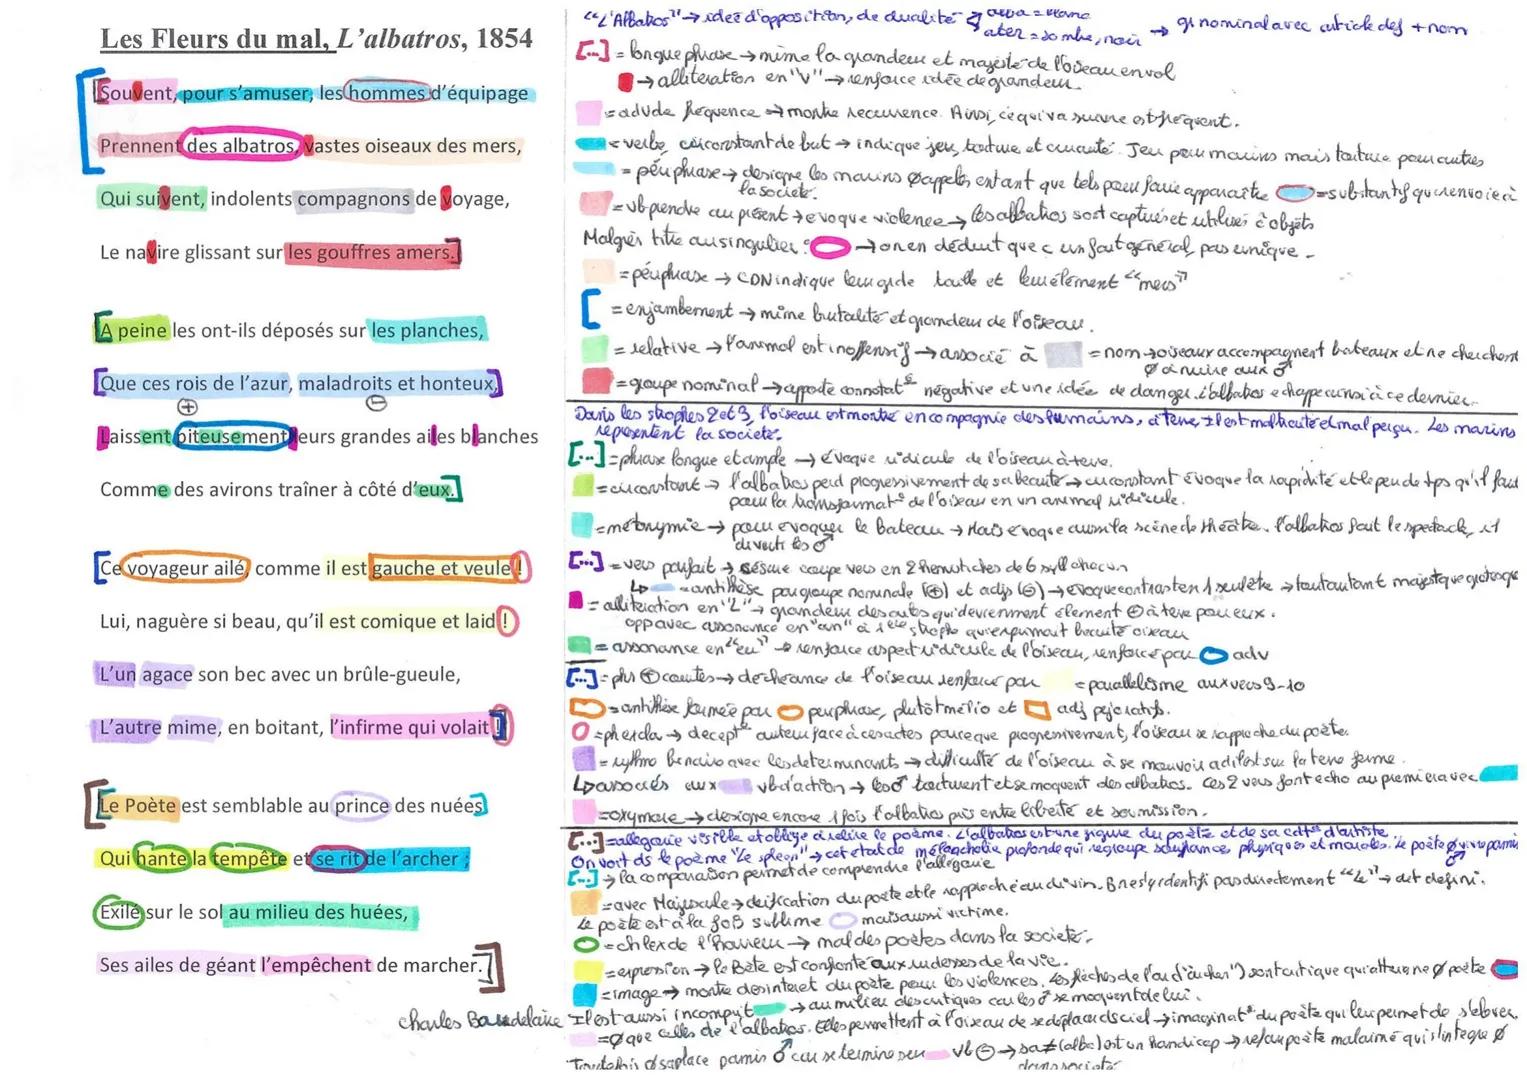 Les Fleurs du mal, L'albatros, 1854
Souvent, pour s'amuser, les hommes d'équipage
Prennent des albatros, vastes oiseaux des mers,
Qui suivent, indolents compagnons de voyage,
Le navire glissant sur les gouffres amers.
A peine les ont-ils déposés sur les planches,
Que ces rois de l'azur, maladroits et honteux,
+ -
Laissent piteusement leurs grandes ailes blanches
Comme des avirons traîner à côté d'eux.
Ce voyageur ailé, comme il est gauche et veule !
Lui, naguère si beau, qu'il est comique et laid !
L'un agace son bec avec un brûle-gueule,
L'autre mime, en boitant, l'infirme qui volait !
Le Poète est semblable au prince des nuées
Qui hante la tempête et se rit de l'archer ;
Exilé sur le sol au milieu des huées,
Ses ailes de géant l'empêchent de marcher.
Charles Baudelaire
"L'Albatros" → idée d'opposition, de dualité
alba = blanc
ater = sombre, noir → gr nominal avec article def + nom
[...] = longue phrase → mime la grandeur et majesté de l'oiseau en vol
→ allitération en "V" → renforce idée de grandeur
= adv de fréquence → montre recurrence. Ainsi, ce qui va suivre est fréquent.
= verbe, circonstant de but → indique jeu, torture et cruauté. Jeu pour marins mais torture pour autres
= périphrase → designe les marins Ø appelés en tant que tels pour faire apparaître = substantif qui renvoie à
la société.
= vb prendre au présent → évoque violence → les albatros sont capturés et utilisés c objets
Malgrès titre au singulier → on en déduit que c un fait général, pas unique.
= périphrase → CDN indique leur grde taille et leur élément "mers"
= enjambement → mime brutalité et grandeur de l'oiseau.
= relative → l'animal est inoffensif → associé à = nom → oiseaux accompagnent bateaux et ne cherchent
Ø à nuire aux ♂
= groupe nominal → apporte connotat° négative et une idée de danger. L'albatros echappe ainsi à ce dernier.
Dans les strophes 2 et 3, l'oiseau est montré en compagnie des humains, à terre, il est maltraité et mal perçu. Les marins
représentent la société.
[...] = phrase longue et ample → évoque ridicule de l'oiseau à terre.
= circonstant → l'albatros perd progressivement de sa beauté → circonstant évoque la rapidité et le peu de tps qu'il faut
pour la transformat° de l'oiseau en un animal ridicule.
= métonymie → pour évoquer le bateau → Mais évoque aussi la scène de théâtre. L'albatros fait le spectacle, il
diverti les ♂
[...] = vers parfait → césure coupe vers en 2 hémistiches de 6 syll chacun
↳ = antithèse par groupe nominale (+) et adjs (-) → évoque contraste
= allitération en "L" → grandeur des ailes qui deviennent élément - à terre pour eux.
opp avec assonance en "an" à 1ère strophe qui exprimait beauté oiseau
= assonance en "eu" → renforce aspect ridicule de l'oiseau, renforcé par adv
[...] = phs + courtes → déchéance de l'oiseau renforcé par = parallélisme aux vers 9-10
= antithèse formée par périphrase, plutôt mélio et adj péjoratifs.
→ decept° auteur face à ces actes parce que progressivement, l'oiseau se rapproche du poète.
= rythme binaire avec les determinants → difficulté de l'oiseau à se mouvoir
↳ associés aux vb d'action → les ♂ torturent et se moquent des albatros. Ces 2 vers font echo au premier avec
= oxymore → designe encore 1 fois l'albatros pris entre liberté et soumission.
[...] = allégorie visible et oblige à relire le poème. L'albatros est une figure du poète et de sa cdt° d'artiste.
On voit ds le poème "le spleen" → cet état de mélancholie profonde qui regroupe souffrances physiques et morales. le poète Ø vivre parmis
[...] → la comparaison permet de comprendre l'allégorie
= avec Majuscule → deification du poète et le rapproche au divin. B ne s'y identifi pas directement "Le" → det défini.
Le poète est à la fois sublime mais aussi victime.
= ch lex de l'horreur → mal des poètes dans la société.
= expression → le Poète est confronté aux rudesses de la vie.
= image → montre desinteret du poète pour les violences.
Il est aussi incompris → au milieu des critiques car les ♂ se moquent de lui.
= Ø que celles de l'albatros. Elles permettent à l'oiseau de se déplacer ds ciel → imaginat° du poète qui leur permet de s'élever
Toutefois Ø sa place parmis ♂ car se termine
dans société